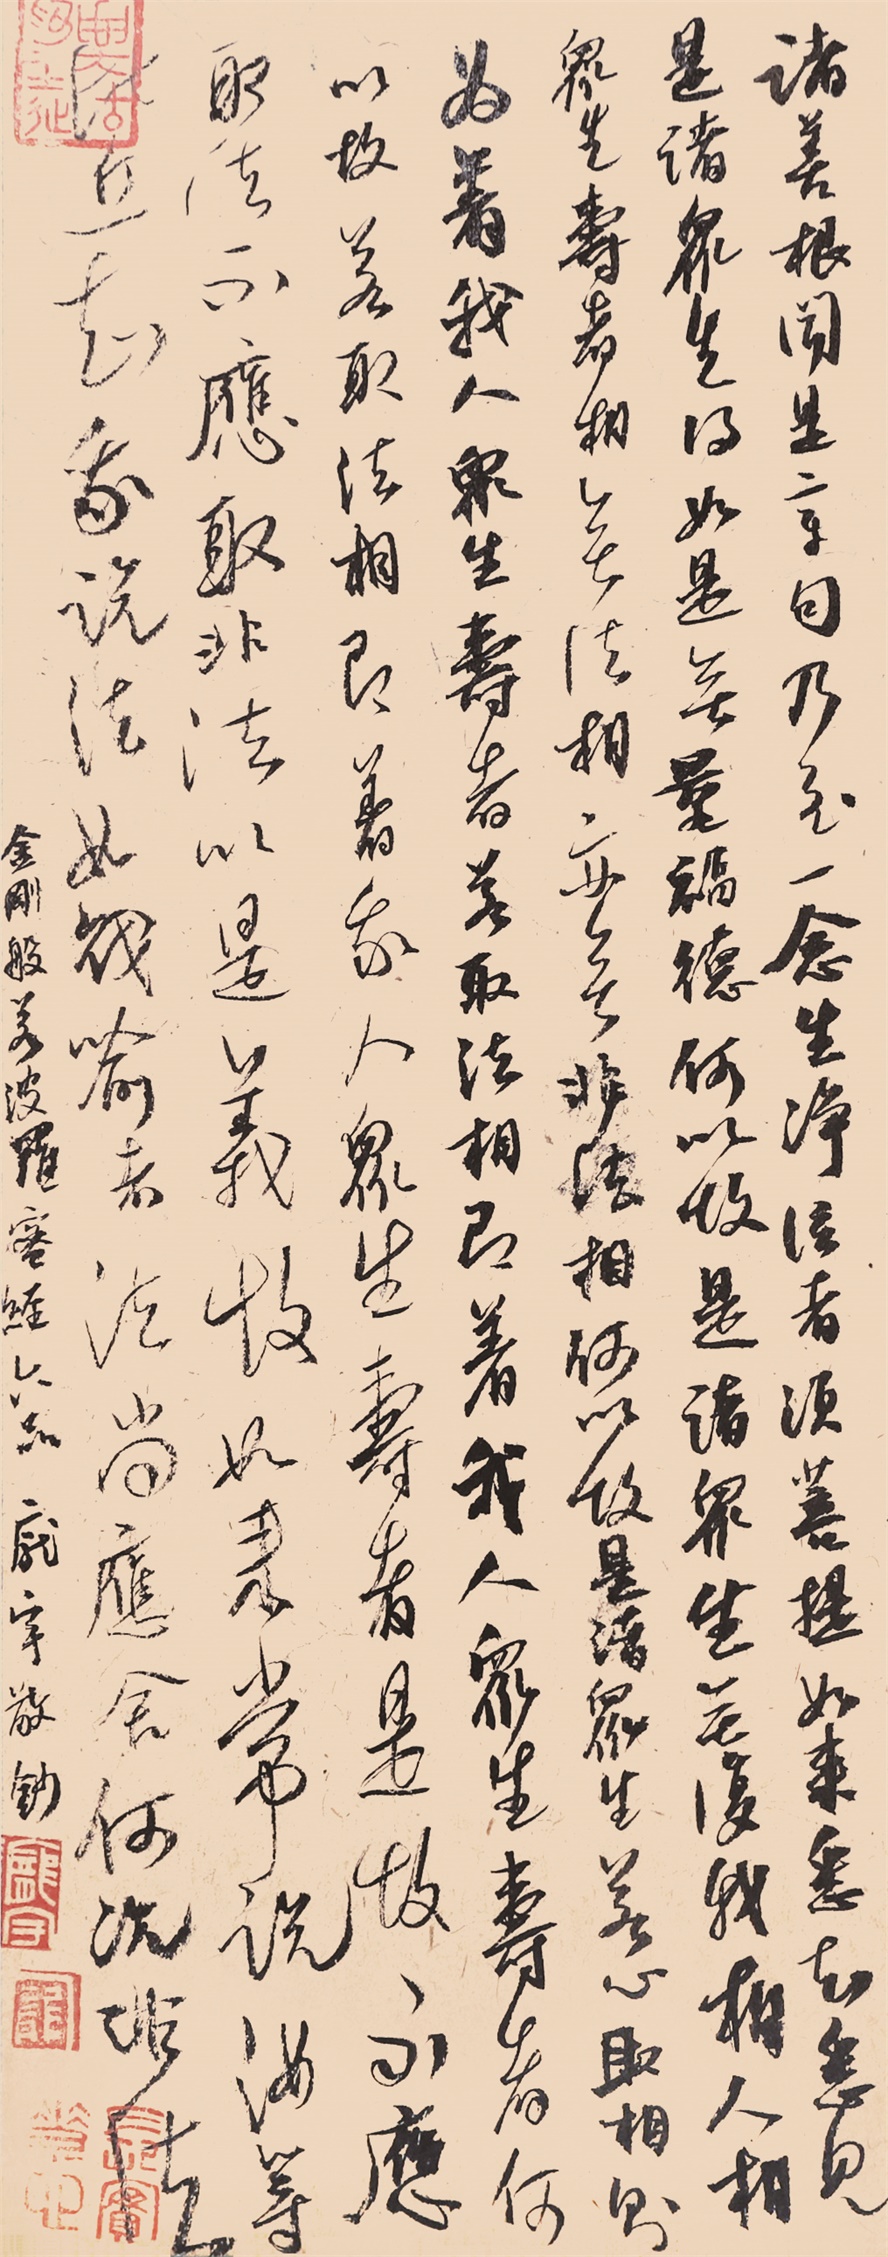 諸善根聞是章句乃至一念生淨信者須菩提如來悉知悉見
是諸眾生得如是無量福德何以故是諸眾生無復我相人相
眾生壽者相無法相亦無非法相何以故是諸眾生若心取相則
為著我人眾生壽者若取法相即著我人眾生壽者何
以故若取法相即著我人眾生壽者是故不應
取法不應取非法以是義故如來常說汝等
比丘知我說法如筏喻者法尚應舍何況非法
金剛般若波羅蜜經六品 龐宇敬鈔